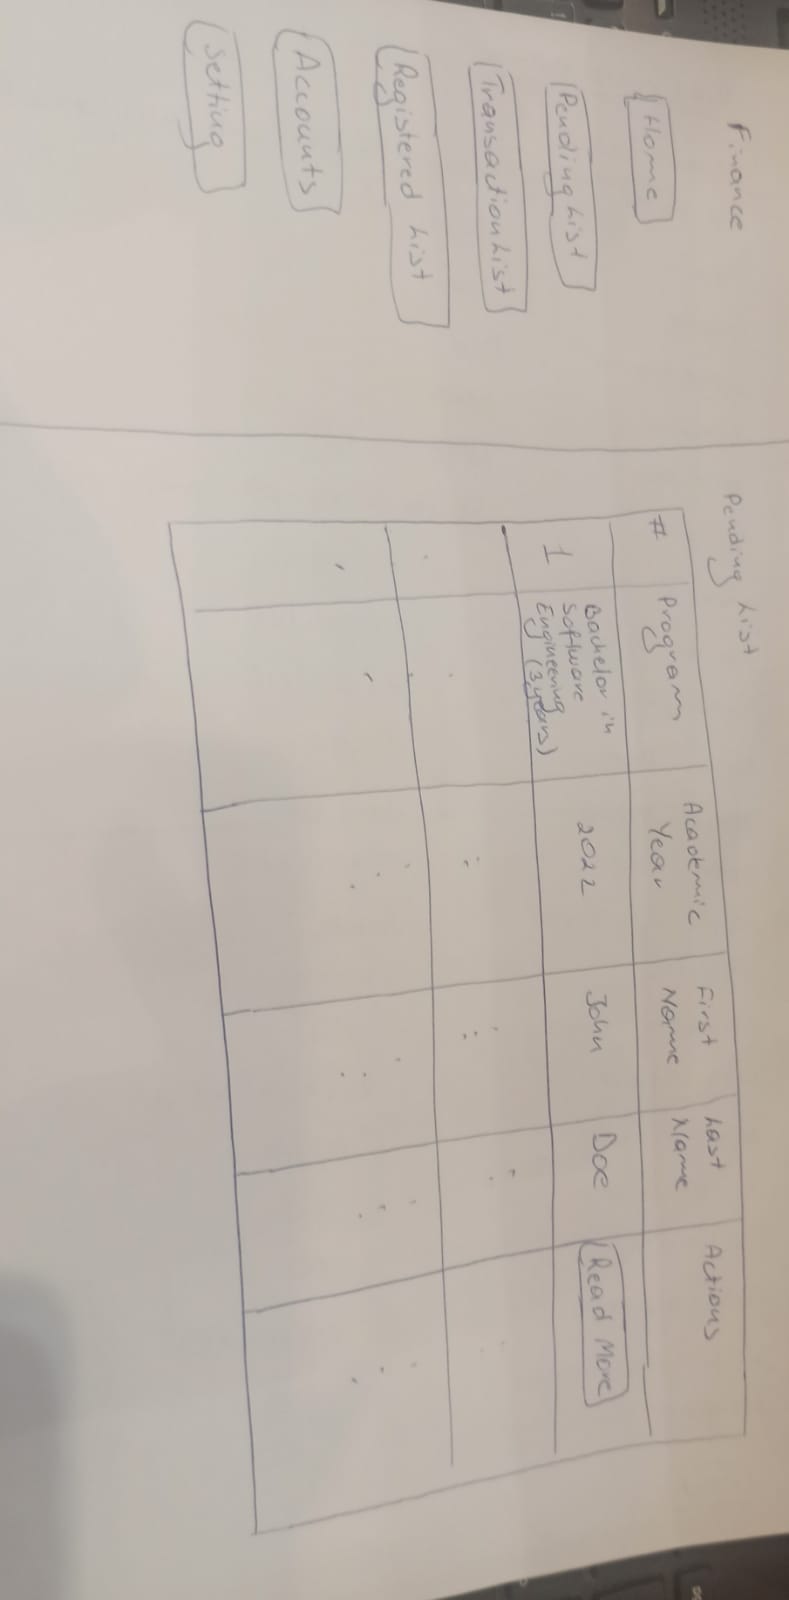 Finance
Home
Pending List
Transaction List
Registered List
Accounts
Setting
Pending List
# Program Academic Year First Name Last Name Actions
1 Bachelor in Software Engineering (3 years) 2022 John Doe Read More